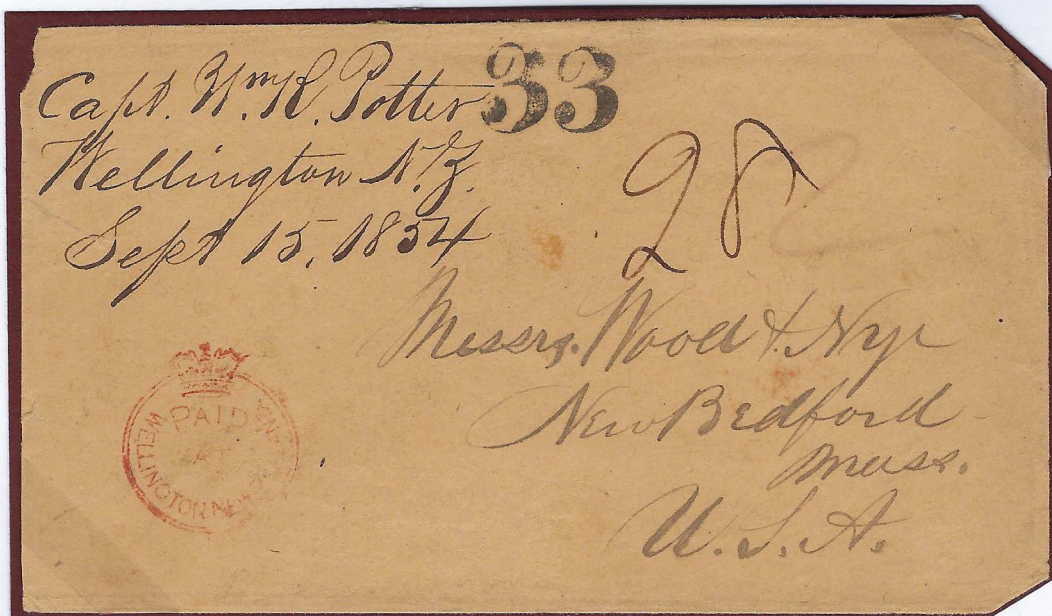 Capt. Wm R. Potter
Wellington N.Z.
Sept 15, 1854
33
28
Messrs. Wood & Nye
New Bedford
Mass.
U.S.A.
PAID
AT
WELLINGTON NEW